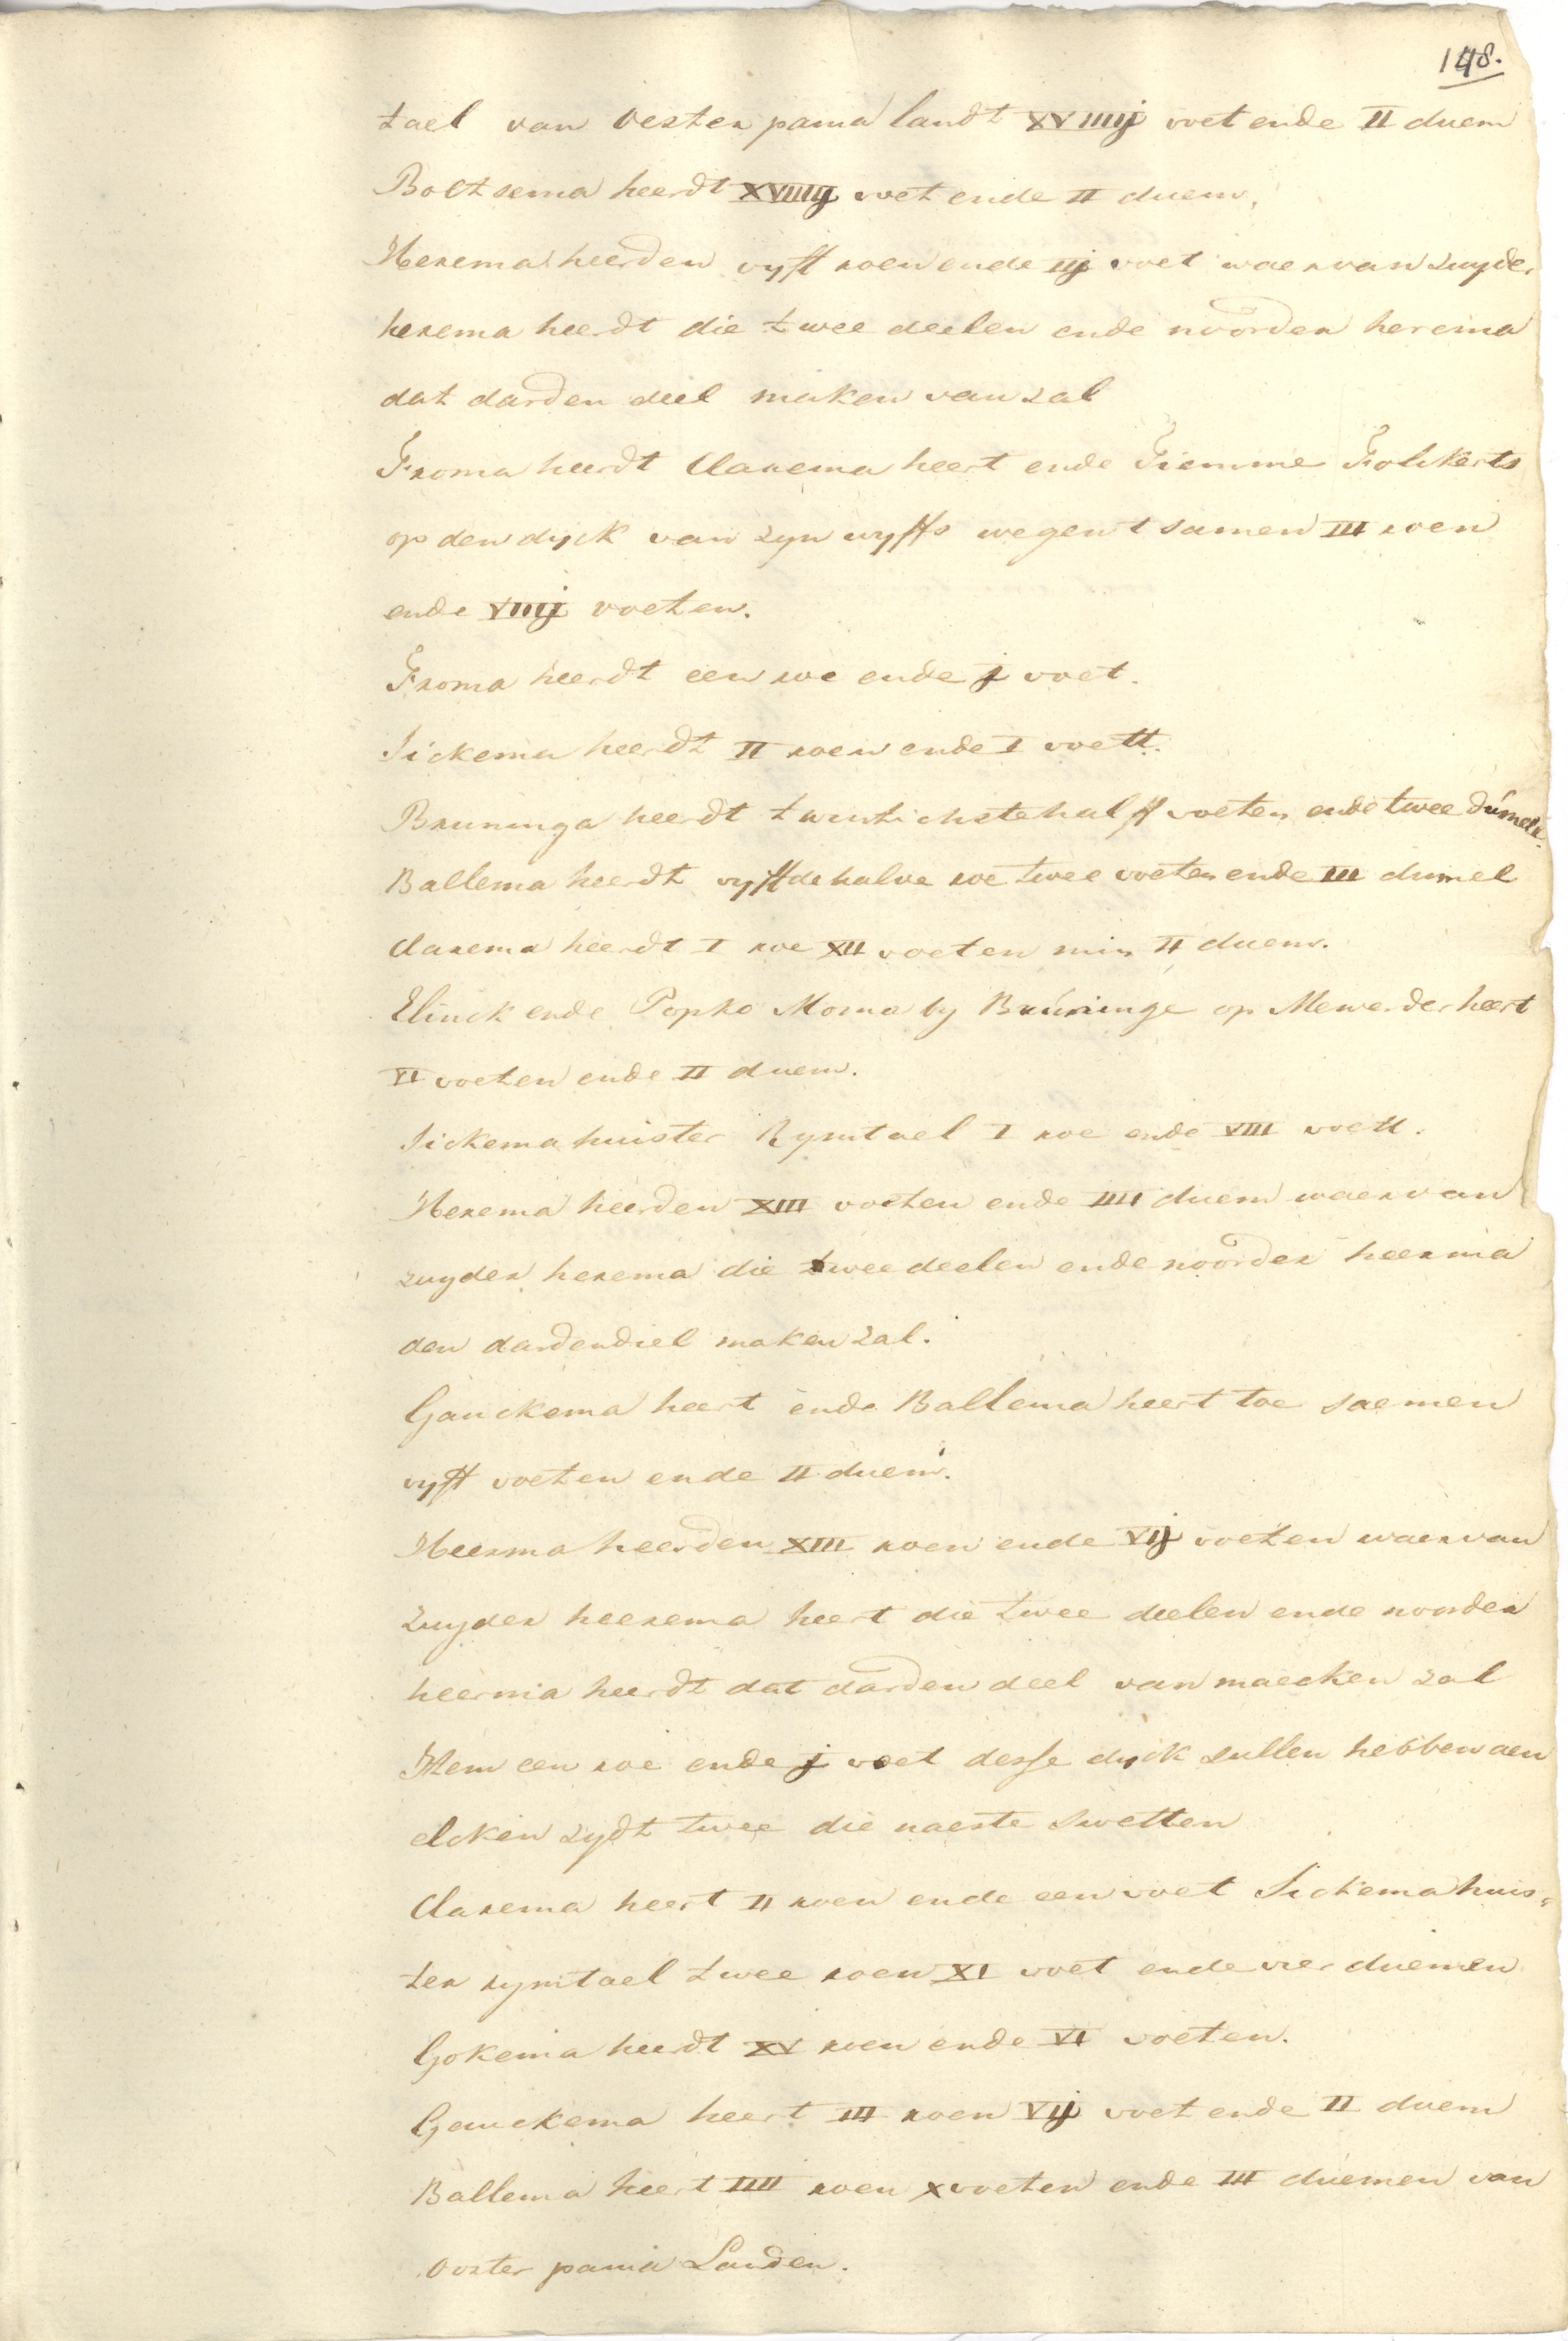 148.
tael van Oester pama landt XVIIIIj voet ende II duem
Boltsema heerdt XVIIIIj voet ende II duem,
Herema heerden vyfft roen ende IIj voet waer van zuyder
herema heerdt die twee deelen ende noorder herema
dat darden deel maken van zal
Froma heerdt Clarema heert ende Fiemme Folckerts
op den dyck van zyn wyffs wegen t samen III roen
ende VIIIj voeten.
Froma heerdt een roe ende j voet.
Sickema heerdt II roen ende I voett.
Bruninga heerdt twintichstehalff voeten ende twee dúmele.
Ballema heerdt vyffdehalve roe twee voeten ende III dumel
Clarema heerdt I roe XII voeten min II duem.
Elinck ende Popko Moma by Brúninge op Mewerder heert
VI voeten ende II duem.
Sickema huister Rymtael I roe ende VIII voett.
Herema heerden XIII voeten ende IIII duem waer van
zuyder herema die twee deelen ende noorder heerma
den dardendiel maken zal.
Gauckema heert ende Ballema heert toe saemen
vyfft voeten ende II duem.
Heerma heerden XIII roen ende VIj voeten waer van
zuyder heerema heert die twee deelen ende noorder
heerma heerdt dat darden deel van maecken zal
Item een roe ende j voet desse dyck sullen hebben aen
elcken zydt twee die naeste swetten
Clarema heert II roen ende een voet Sickema huis=
ter rymtael twee roen XI voet ende vier duemen
Gokema heerdt XV roen ende VI voeten.
Gauckema heert III roen VIj voet ende II duem
Ballema heert IIII roen X voeten ende III duemen van
Ooster pama Landen.